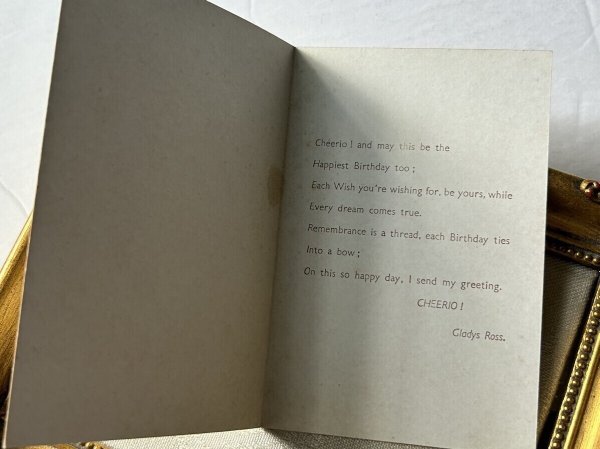 Cheerio! and may this be the
Happiest Birthday too;
Each Wish you're wishing for, be yours, while
Every dream comes true.
Remembrance is a thread, each Birthday ties
Into a bow;
On this so happy day, I send my greeting.
CHEERIO!
Gladys Ross.